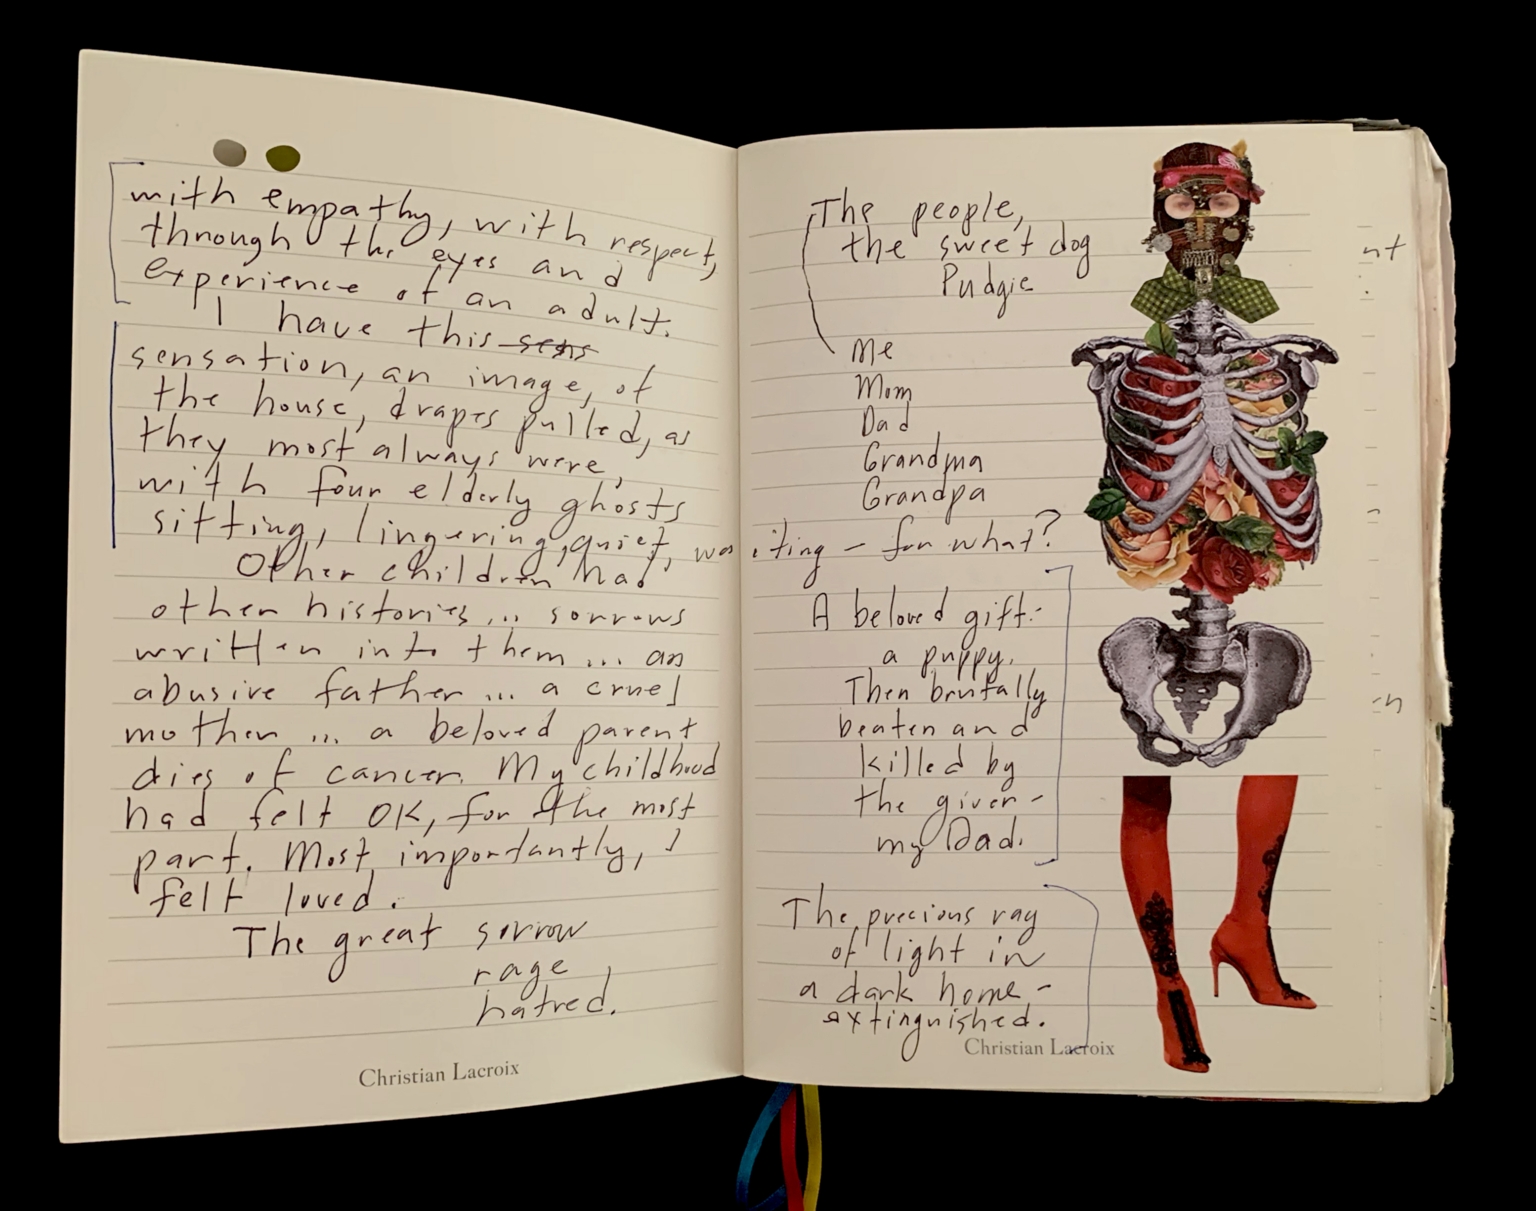 with empathy, with respect,
through the eyes and
experience of an adult.
I have this sens
sensation, an image, of
the house, drapes pulled, as
they most always were,
with four elderly ghosts
sitting, lingering, quiet, waiting – for what?
Other children had
other histories ... sorrows
written into them ... an
abusive father ... a cruel
mother ... a beloved parent
dies of cancer. My childhood
had felt OK, for the most
part. Most importantly, I
felt loved.
The great sorrow
rage
hatred.
Christian Lacroix
The people,
the sweet dog
Pudgie
Me
Mom
Dad
Grandma
Grandpa
A beloved gift –
a puppy.
Then brutally
beaten and
killed by
the giver –
my Dad.
The precious ray
of light in
a dark home –
extinguished.
Christian Lacroix
nt